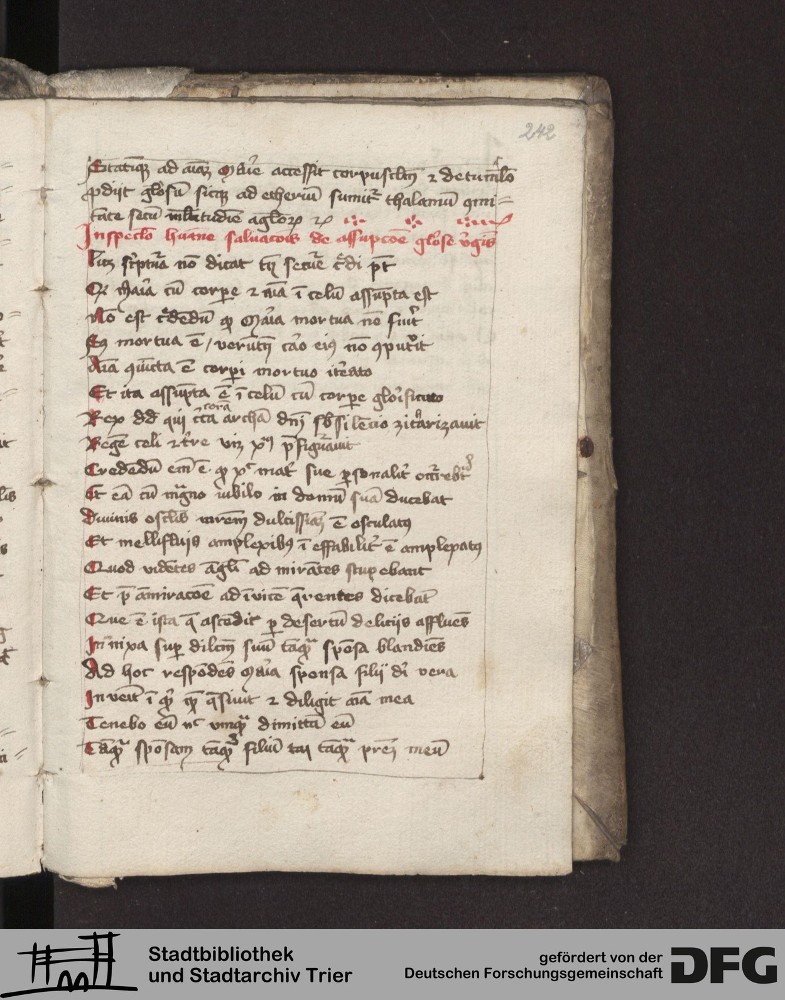 242
Statimque ad aiam Marie accessit corpusculum et de tumulo
prodijt gloriosum sicque ad etherium sumitur thalamum comi=
tante secum multitudine angelorum etc
In speculo humane saluacionis de assumpcione gloriose virginis
licet scriptura non dicat tamen secure credi potest
Quod Maria cum corpore et anima in celum assumpta est
Non est credendum quod Maria mortua non fuerit
Sed mortua est / verumtamen caro eius non computruit
Anima coniuncta est corpori mortuo iterato
Et ita assumpta est in celum cum corpore glorificato
Rex dauid qui circa coram archam domini saliendo citharizauit
Regem celi et terre videlicet christum prefigurauit
Credendum enim est quod christus matri sue personaliter occurrebat
Et eam cum magno iubilo in domum suam ducebat
Diuinis osculis matrem dulcissimam est osculatus
Et mellifluis amplexibus ineffabiliter est amplexatus
Quod videntes angeli admirantes stupebant
Et pre ammiracione adinuicem querentes dicebant
Que est ista que ascendit per desertum delicijs affluens
Innixa super dilectum suum tamquam sponsa blandiens
Ad hoc respondens Maria sponsa filij dei vera
Inueni inquit quem quesiuit et diligit anima mea
Tenebo eum nec vmquam dimittam eum
Tamquam sponsum tamquam filium tamquam patrem meum
Stadtbibliothek
und Stadtarchiv Trier
gefördert von der
Deutschen Forschungsgemeinschaft
DFG